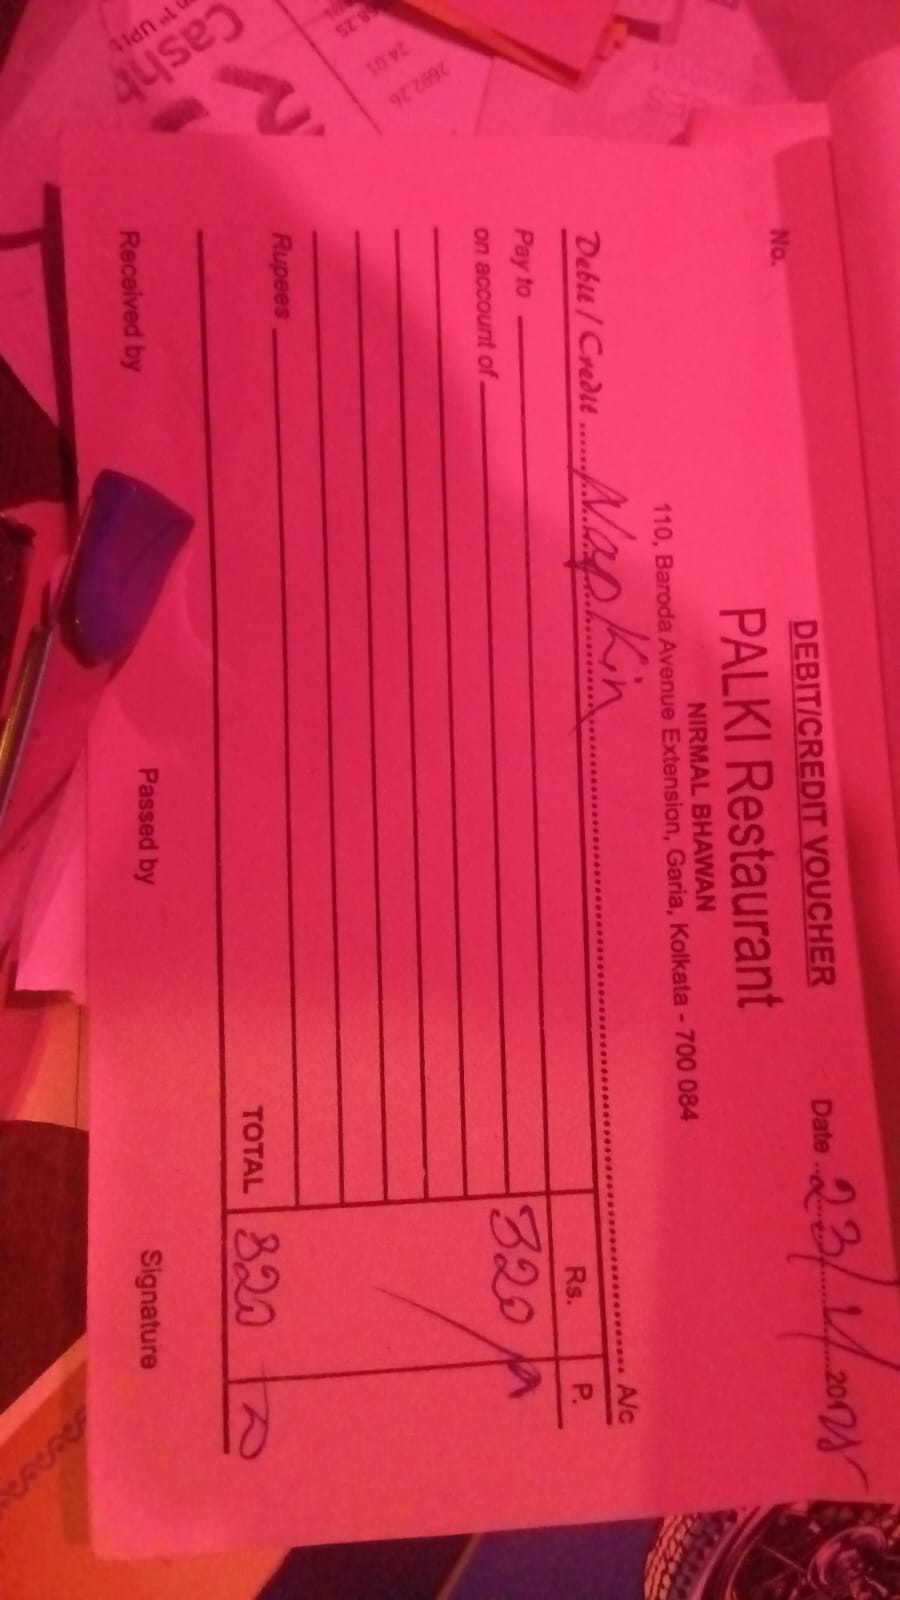 DEBIT/CREDIT VOUCHER
PALKI Restaurant
No.
Date 23/
NIRMAL BHAWAN
110, Baroda Avenue Extension, Garia, Kolkata - 700 084
Debit / Credit ...... Napkin ...... A/c
Rs. P.
Pay to
on account of 320/
Rupees
TOTAL 820
Received by Passed by Signature
Cash
24.01
2692.26